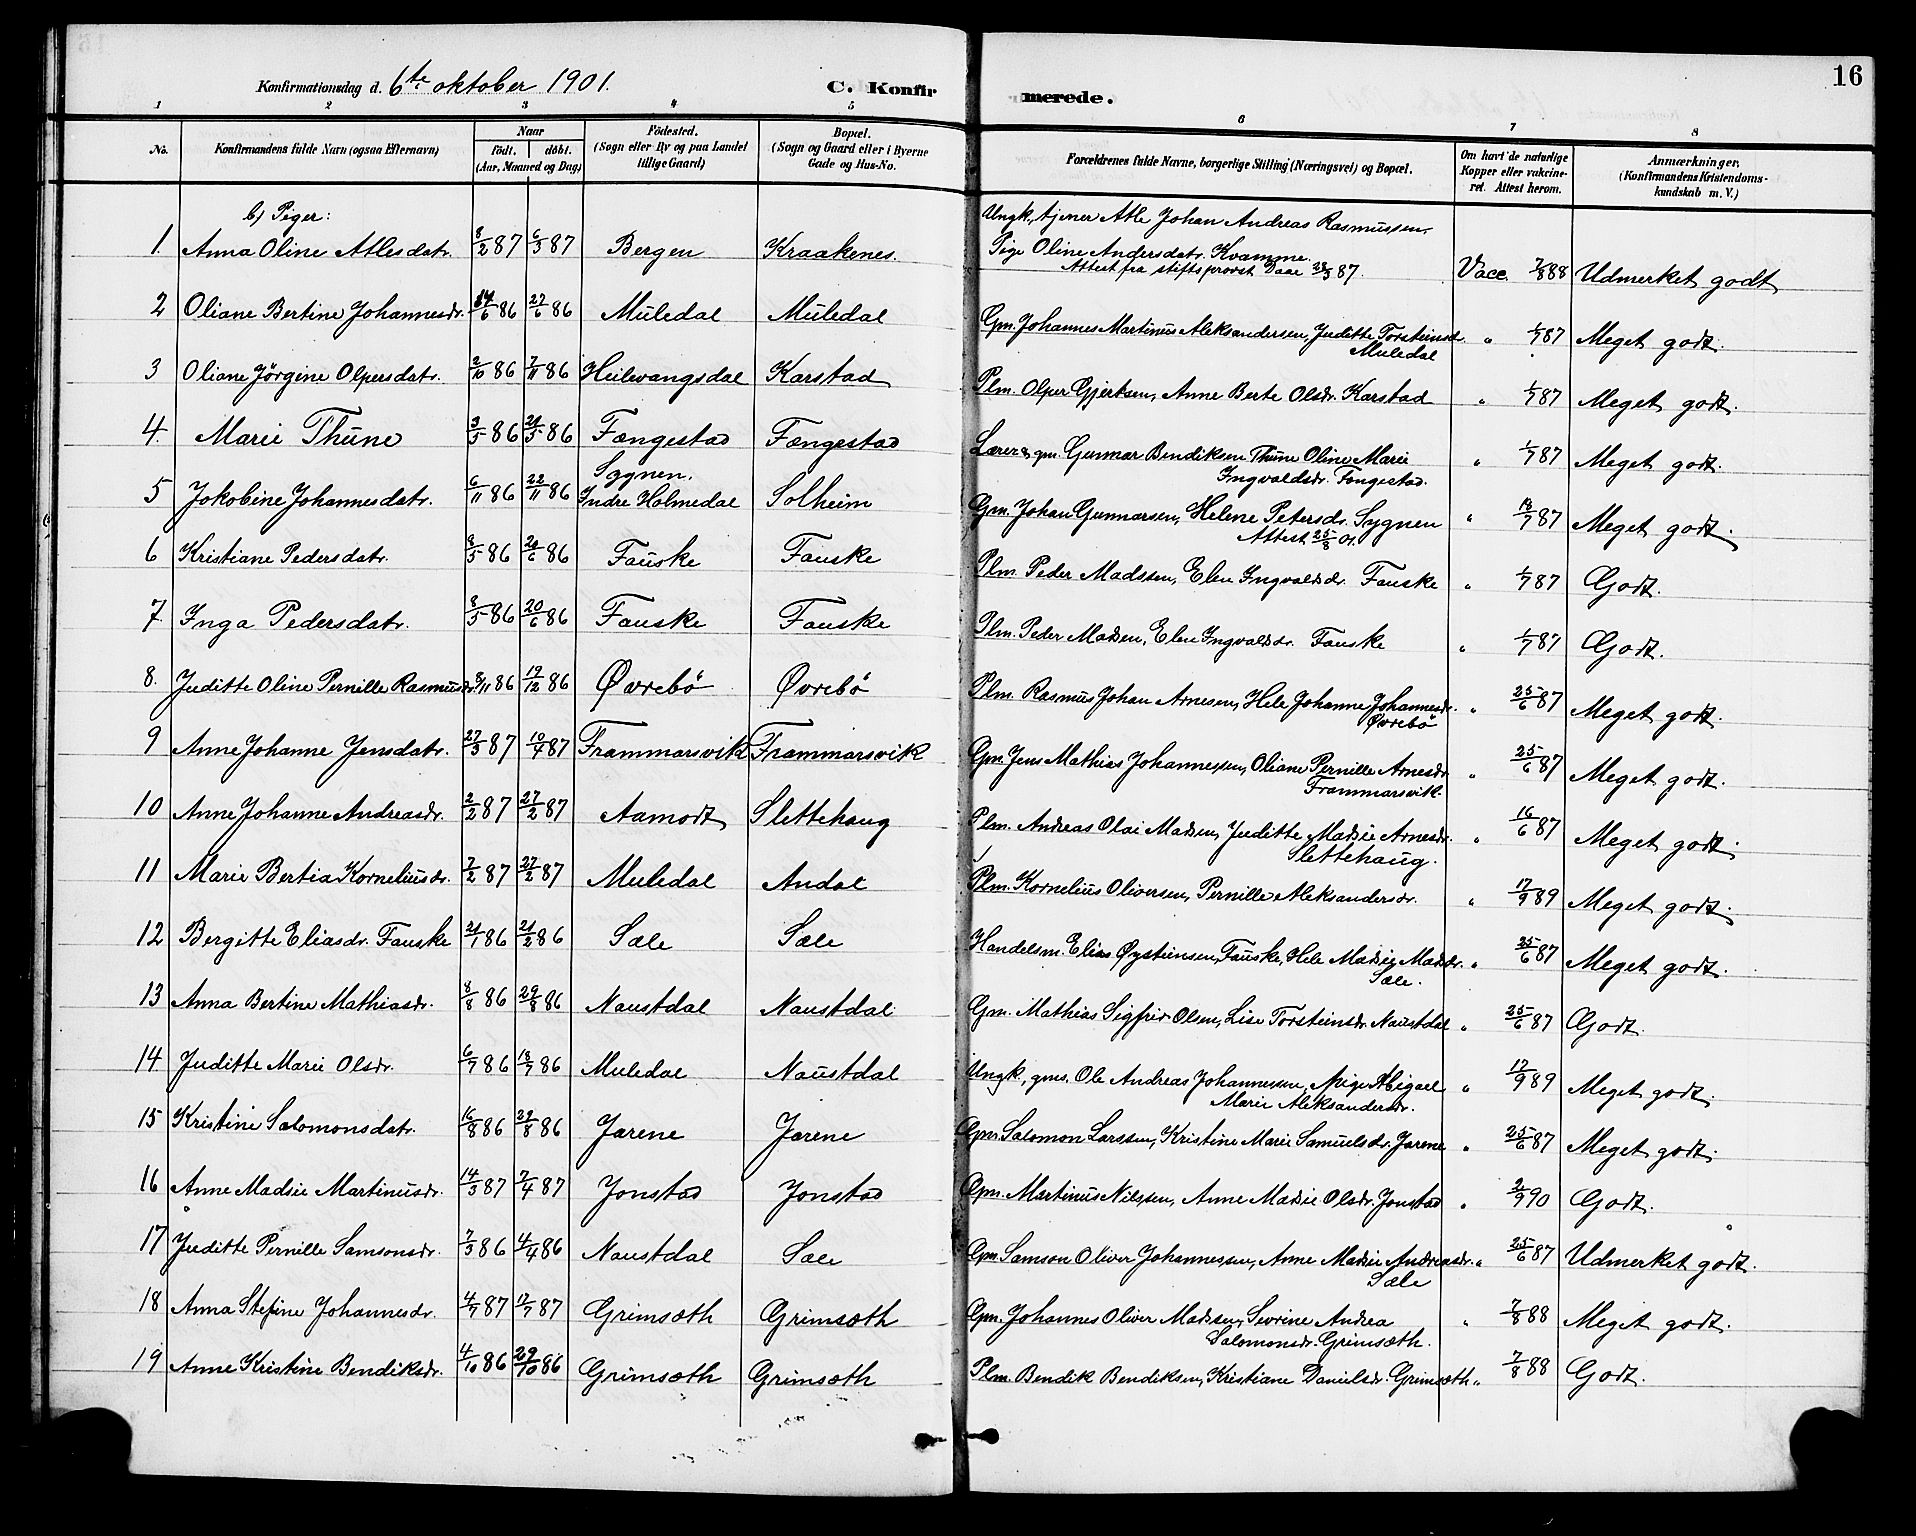 16
Konfirmationsdag d. 6te oktober 1901.
C. Konfirmerede.
1 2 3 4 5 6 7 8
No. Konfirmandens fulde Navn (ogsaa Efternavn) Naar födt. döbt. (Aar, Maaned og Dag) Födested. (Sogn eller By og paa Landet tillige Gaard) Bopæl. (Sogn og Gaard eller i Byerne Gade og Hus-No. Forældrenes fulde Navne, borgerlige Stilling (Næringsvei) og Bopæl. Om havt de naturlige Kopper eller vakcineret. Attest herom. Anmærkninger. (Konfirmandens Kristendomskundskab m. V.)
b) Piger:
1. Anna Oline Atlesdatr. 8/2 87 6/3 87 Bergen Kraakenes. Ungk., tjener Atle Johan Andreas Rasmussen, Pige Oline Andersdatr. Kvamme. Attest fra stiftsprovst Daae 28/3 87. Vacc. 7/8 88 Udmerket godt
2 Oliane Bertine Johannesdr. 14/6 86 27/6 86 Muledal Muledal Gm. Johannes Martinus Aleksandersen, Juditte Torsteinsd. Muledal " 1/7 87 Meget godt.
3 Oliane Jörgine Olpersdatr. 2/10 86 7/11 86 Heilevangsdal Karstad Plm. Olper Gjertsen, Anne Berte Olsdr. Karstad " 1/7 87 Meget godt.
4. Marie Thune 3/5 86 21/5 86 Fængestad Fængestad Lærer & gm. Gunnar Bendiksen Thune Oline Marie Ingvaldsdr. Fængestad. " 1/7 87 Meget godt.
5 Jokobine Johannesdatr. 6/11 86 22/11 86 Sygnen, Indre Holmedal Solheim Gm. Johan Gunnarsen, Helene Petersdr. Sygnen Attest 25/8 01. " 18/7 87 Meget godt.
6 Kristiane Pedersdatr 8/5 86 20/6 86 Fauske Fauske Plm. Peder Madssen, Elen Ingvaldsdr. Fauske " 1/7 87 Godt.
7. Inga Pedersdatr. 8/5 86 20/6 86 Fauske Fauske Plm. Peder Madsen, Elen Ingvaldsdr. Fauske " 1/7 87 Godt.
8. Juditte Oline Pernille Rasmusdr. 8/11 86 19/12 86 Øvrebö Øvrebö Plm. Rasmus Johan Arnesen, Hele Johanne Johannesdr. Øvrebö " 25/6 87 Meget godt.
9 Anne Johanne Jensdatr. 27/3 87 10/4 87 Frammarsvik Frammarsvik Gm. Jens Mathias Johannessen, Oliane Pernille Arnesdr. Frammarsvik. " 25/6 87 Meget godt.
10 Anne Johanne Andreasdr. 2/2 87 27/2 87 Aamodt Slettehaug Plm. Andreas Olai Madsen, Juditte Madsie Arnesdr. Slettehaug. " 16/6 87 Meget godt.
11 Marie Bertia Korneliusdr. 7/2 87 27/2 87 Muledal Andal Plm. Kornelius Oliversen, Pernille Aleksandersdr. " 17/9 89 Meget godt.
12 Bergitte Eliasdr. Fauske 21/1 86 21/2 86 Sæle Sæle Handelsm. Elias Øysteinsen, Fauske, Hele Madsie Madsdr. Sæle. " 25/6 87 Meget godt.
13 Anna Bertine Mathiasdr. 8/8 86 29/8 86 Naustdal Naustdal Gm. Mathias Sigfrid Olsen, Lise Torsteinsdr. Naustdal " 25/6 87 Godt.
14 Juditte Marie Olsdr. 6/7 86 18/7 86 Muledal Naustdal Ungk., gms. Ole Andreas Johannessen, Pige Abigael Marie Aleksandersdr. " 17/9 89 Meget godt.
15 Kristine Salomonsdatr. 16/8 86 29/8 86 Jarene Jarene Gm. Salomon Larssen, Kristine Marie Samuelsdr. Jarene " 25/6 87 Meget godt.
16 Anne Madsie Martinusdr. 14/3 87 7/4 87 Jonstad Jonstad Gm. Martinus Nilssen, Anne Madsie Olsdr. Jonstad " 2/9 90 Godt.
17 Juditte Pernille Samsonsdr. 7/3 86 4/4 86 Naustdal Sæle Gm. Samson Oliver Johannessen, Anne Madsie Andreasdr. Sæle " 25/6 87 Udmerket godt.
18 Anna Stefine Johannesdr. 4/7 87 17/7 87 Grimsæth Grimsæth Gm. Johannes Oliver Madsen, Sevrine Andrea Salomonsdr. Grimsæth. " 7/8 88 Meget godt.
19 Anne Kristine Bendiksdr. 4/10 86 29/10 86 Grimsæth Grimsæth Plm. Bendik Bendiksen, Kristiane Danielsdr. Grimsæth " 7/8 88 Godt.